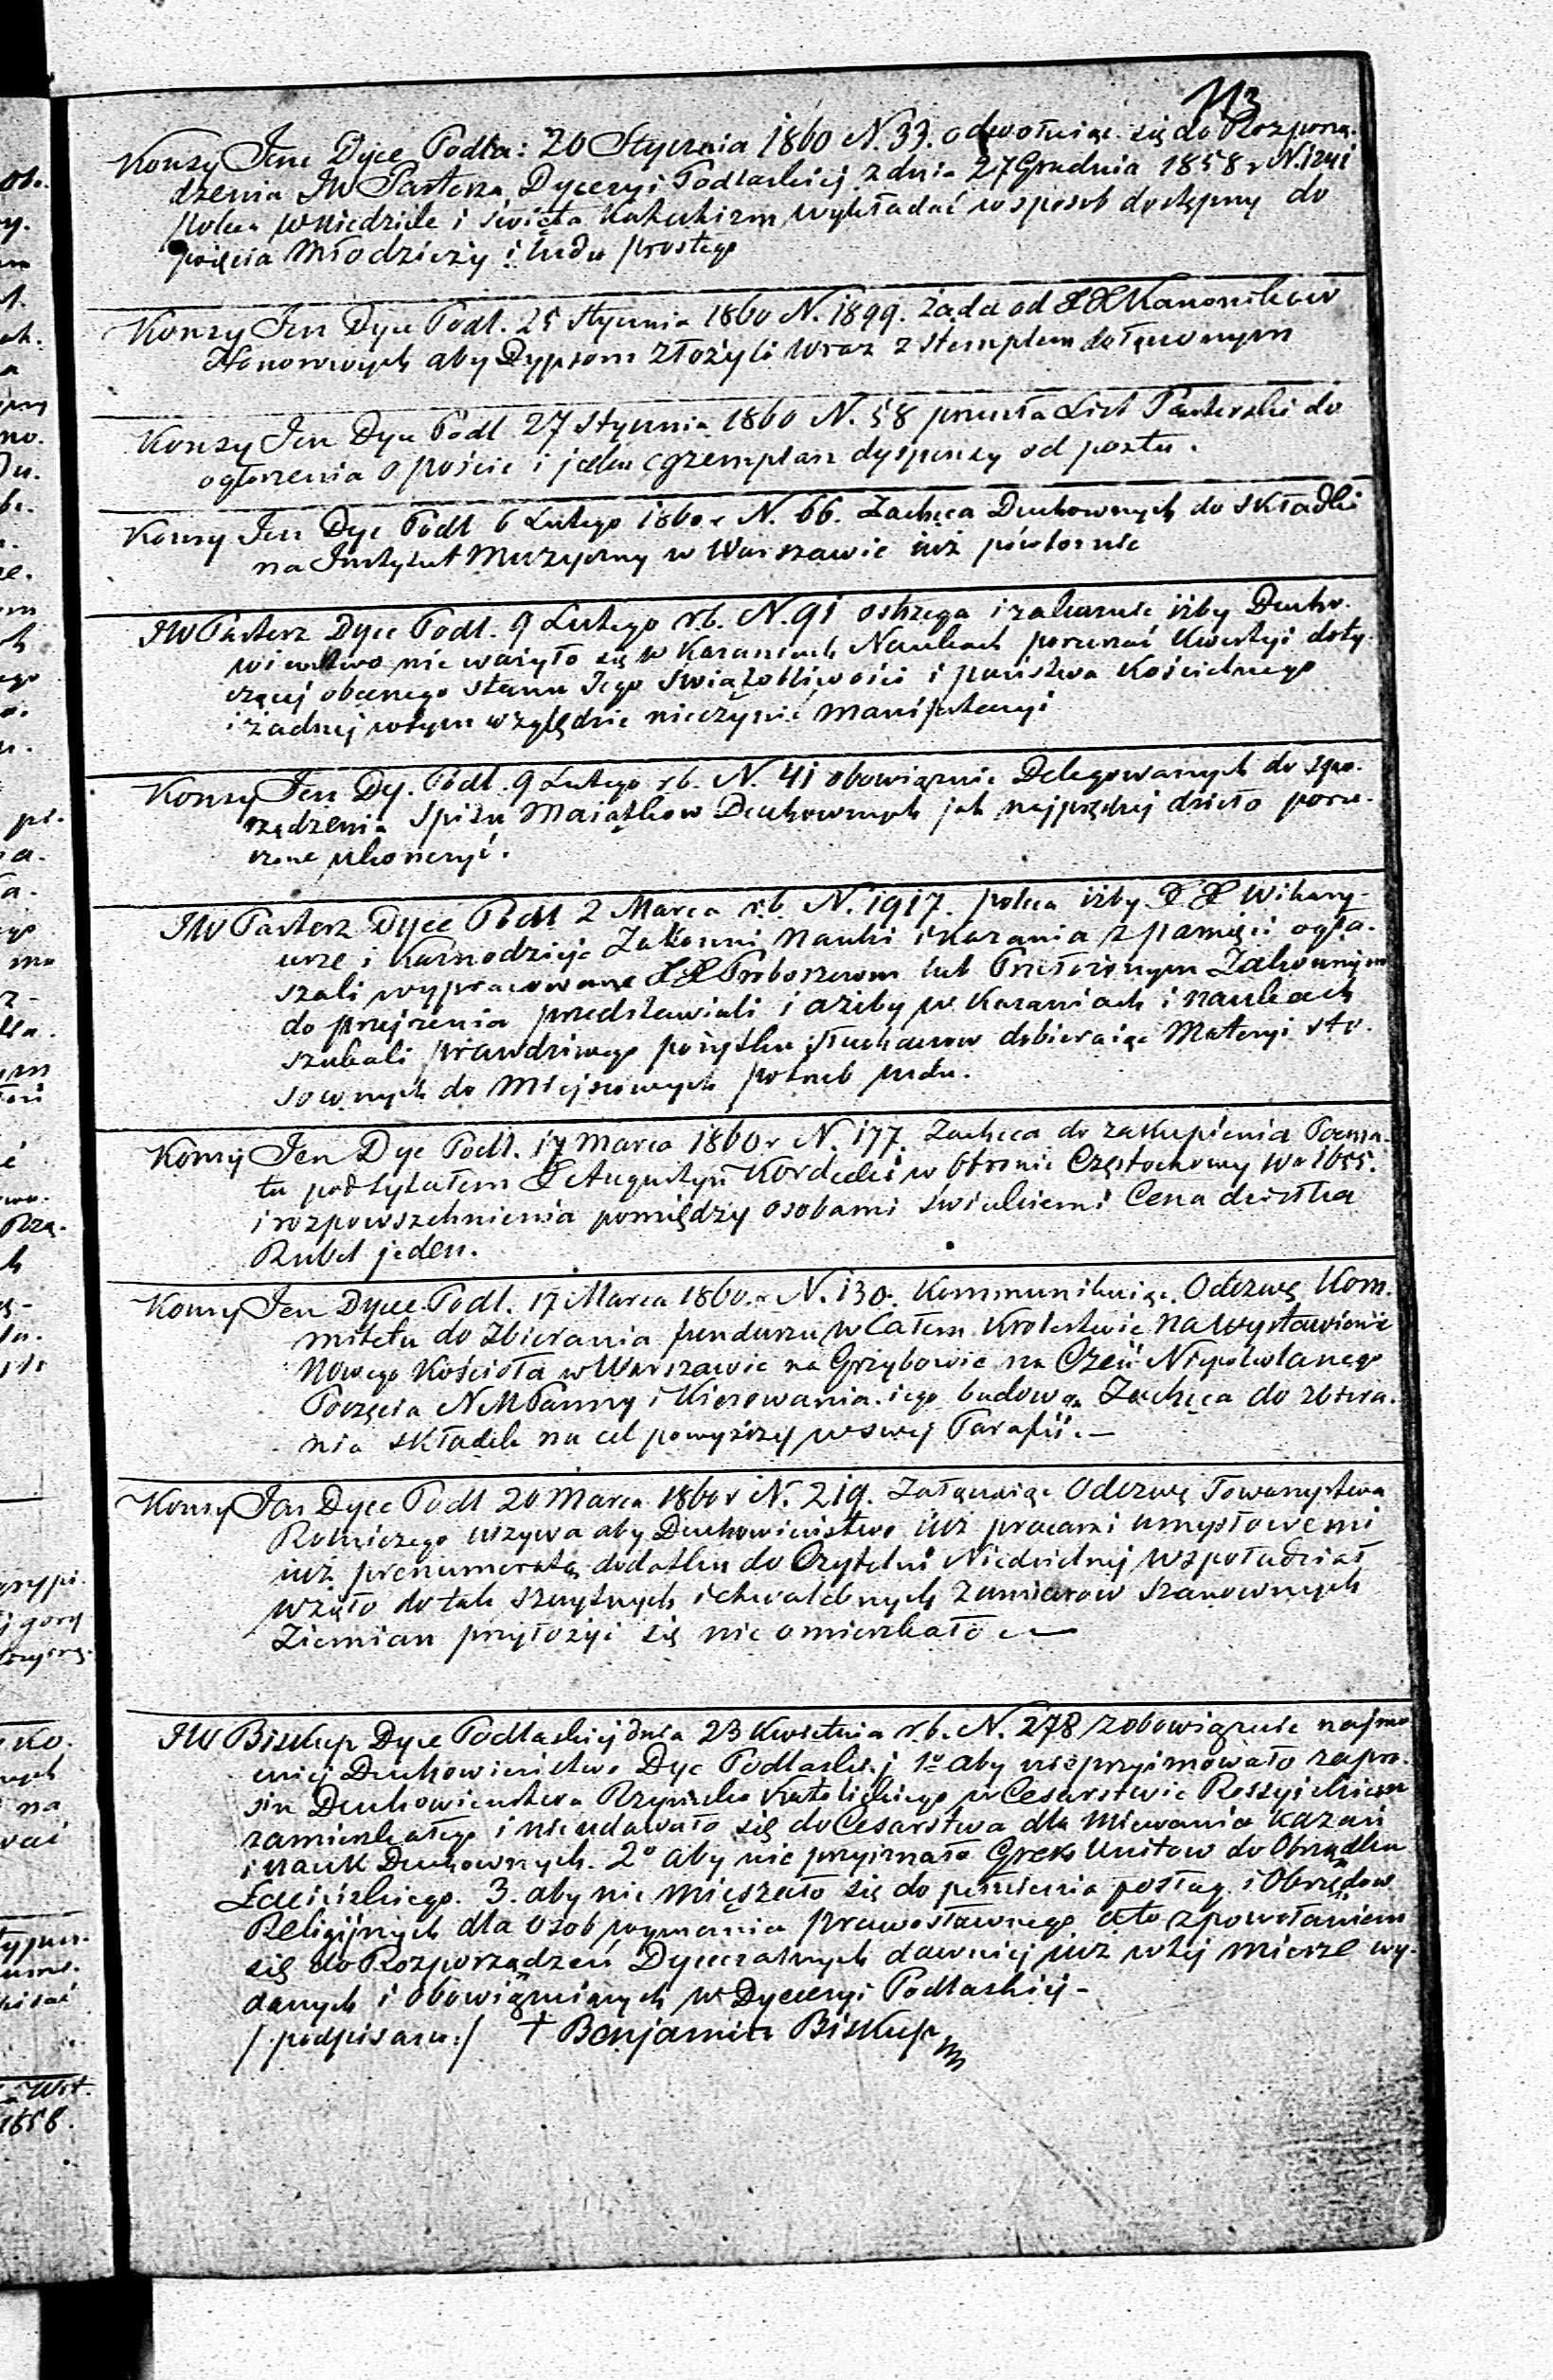 113
Konsy Jene Dyce Podla: 20 Stycznia 1860 N. 33. odwołuiąc się do Rozporzą-
dzenia JW Pasterza Dyecezyi Podlaskiej z dnia 27 Grudnia 1858 r N.
poleca w niedziele i święta Katechizm wykładać w sposob dostępny do
pojęcia Młodzieży i ludu prostego
Konsy Jen Dyce Podl. 25 Stycznia 1860 N. 1899. Żąda od XX Kanoników
Honorowych aby złożyli wraz z stemplem dołączonym
Konsy Jen Dyce Podl 27 Stycznia 1860 N. 58 przesyła List Pasterski do
ogłoszenia o poście i jeden egzemplarz dyspensy od postu.
Konsy Jen Dyc Podl 6 Lutego 1860 r N. 66. Zachęca Duchownych do składki
na Instytut Muzyczny w Warszawie iuż powtornie
JW Pasterz Dyce Podl. 9 Lutego r.b. N. 91 ostrzega i zakazuie iżby Ducho-
wieństwo nie ważyło się w Kazaniach Naukach poruszać kwestyi doty-
czącej obecnego stanu Jego Świątobliwości i państwa Kościelnego
i żadnej w tym względzie nieczynić manifestacyi
Konsy Jen Dy. Podl. 9 Lutego r.b. N. 41 obowiązuie Delegowanych do spo-
rządzenia Spisu Maiątkow Duchownych jak najprędzej dzieło poru-
czone ukonczyć.
JW Pasterz Dyce Podl 2 Marca r.b. N. 1917. poleca iżby XX Wikary-
usze i Kaznodzieje Zakonni, Nauki i kazania z pamięci ogła-
szali wypracowane XX Proboszczom lub Przełożonym Zakonnym
do przejrzenia przedstawiali i ażeby w Kazaniach i naukach
szukali prawdziwego pożytku Słuchaczow dobieraiąc Materyi sto-
sownych do Miejscowych potrzeb ludu.
Konsy Jen Dyc Podl. 17 Marca 1860 r N. 177. Zachęca do zakupienia Poema-
tu pod tytułem X Augustyn Kordecki w Obronie Częstochowy w r 1655.
i rozpowszechnienia pomiędzy osobami świeckiemi Cena dziełka
Rubel jeden.
Konsy Jen Dyce Podl. 17 Marca 1860 r N. 130. Kommunikuiąc Odezwę Kom-
mitetu do Zbierania funduszu w całem Krolestwie na wystawienie
Nowego Kościoła w Warszawie na Grzybowie na Cześć Niepokolanego
Poczęcia N M Panny i Kierowania iego budową Zachęca do zbiera-
nia składek na cel powyższy w swej Parafii.—
Konsy Jen Dyce Podl 20 Marca 1860 r N. 219. Załączaiąc Odezwę Towarzystwa
Rolniczego wzywa aby Duchowieństwo iuż pracami umysłowemi
iuż prenumeratą dodatku do Czytelni Niedzielnej wspołudział
wzięło do tak szczytnych i chwalebnych zamiarow szanownych
Ziemian przyłożyć się nie omieszkało.—
JW Biskup Dyce Podlaskiej dnia 23 Kwietnia r.b. N. 278 zobowiązuie najmo-
cniej Duchowieństwo Dyc Podlaskiej 1o aby nieprzyimowało zapro-
sin Duchowieństwa Rzymsko Katolickiego w Cesarstwie Rossyiskiem
zamieszkałego i nieudawało się do Cesarstwa dla Miewania kazań
i nauk Duchownych. 2o aby nie przyimało Greko Unitow do Obrządku
Łacińskiego. 3. aby nie mięszało się do pełnienia posług i Obrzędow
Religijnych dla osob wyznania prawosławnego a to z powołaniem
się do Rozporządzeń Dyecezalnych dawniej już w tej mierze wy-
danych i obowiązuiących w Dyecezyi Podlaskiej -
/.podpisano:/ † Benjamin Biskup